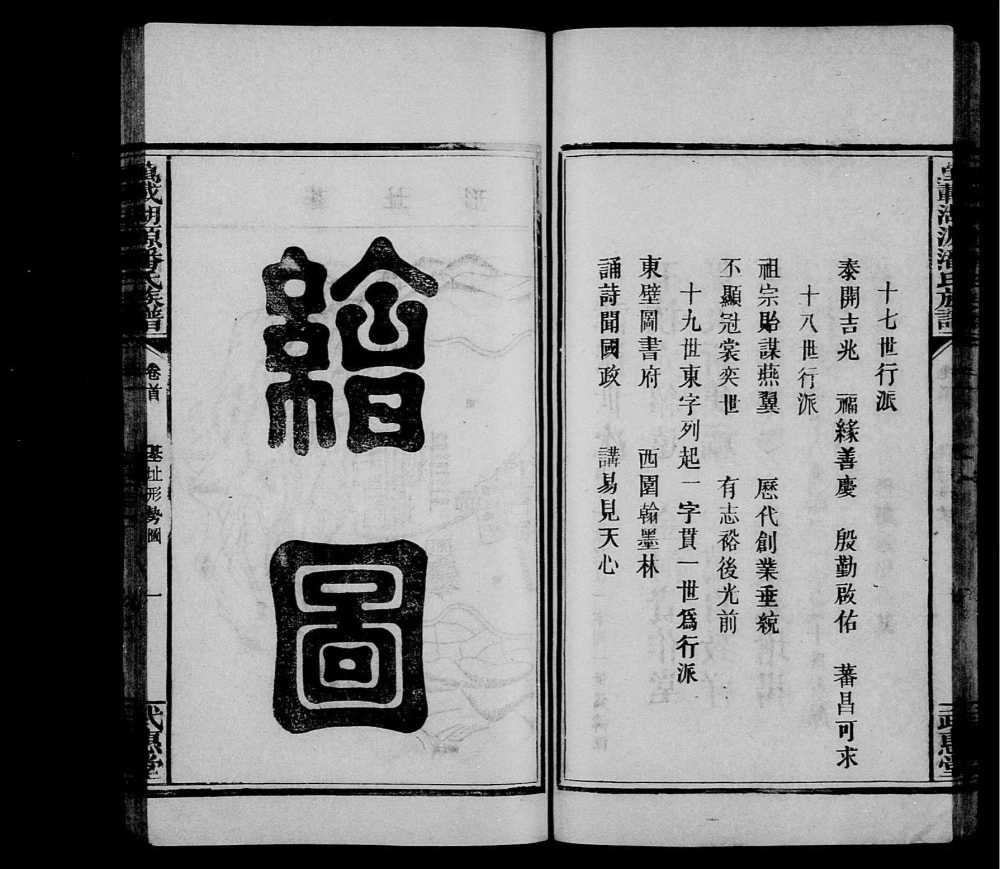 十七世行派
泰開吉兆 福緣善慶 殷勤啟佑 蕃昌可求
十八世行派
祖宗貽謀燕翼 歷代創業垂統
不顯冠裳奕世 有志裕後光前
十九世東字列起一字貫一世爲行派
東壁圖書府 西園翰墨林
誦詩聞國政 講易見天心
繪圖
萬載湖源潘氏族譜 卷首 基址形勢圖 一 武惠堂